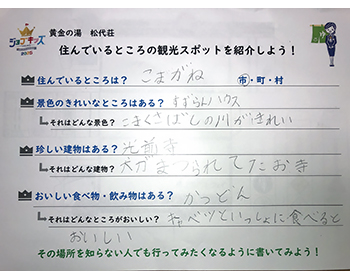 ジョブキッズ
黄金の湯 松代荘
住んでいるところの観光スポットを紹介しよう！
住んでいるところは？ こまがね 市・町・村
景色のきれいなところはある？ すずらんハウス
それはどんな景色？ こまくさばしの川がきれい
珍しい建物はある？ 光前寺
それはどんな建物？ 犬がまつられてたお寺
おいしい食べ物・飲み物はある？ かつどん
それはどんなところがおいしい？ キャベツといっしょに食べると
おいしい
その場所を知らない人でも行ってみたくなるように書いてみよう！